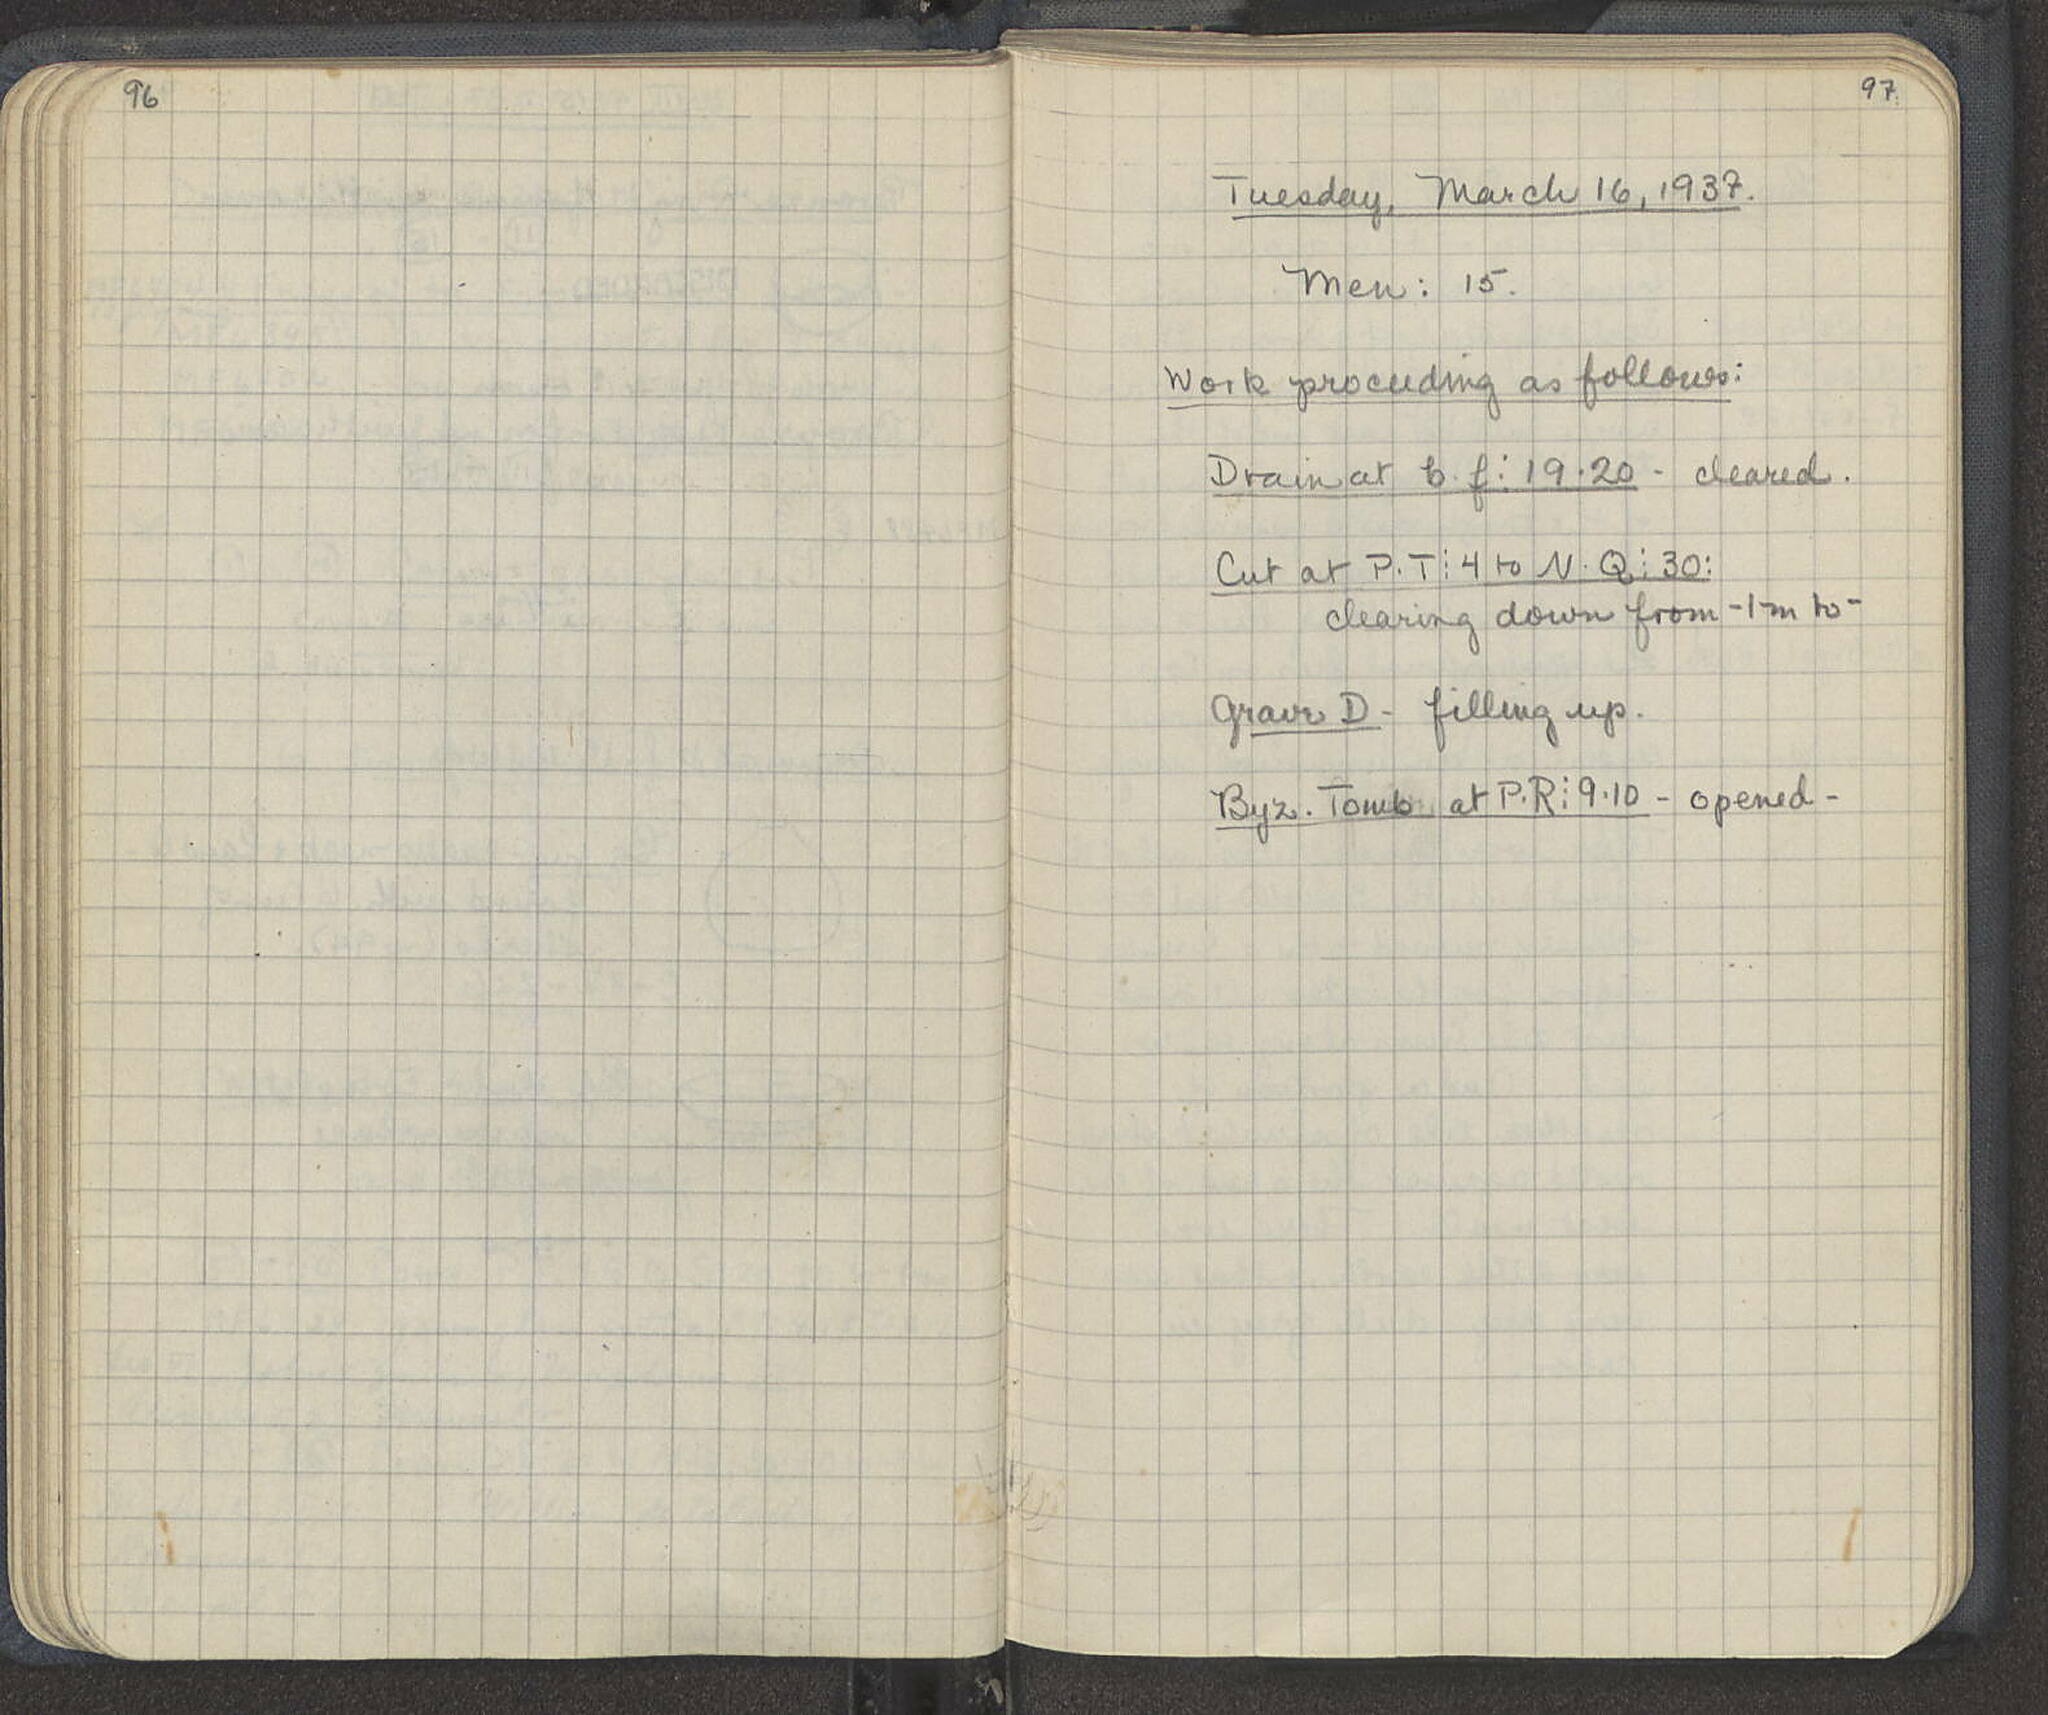 96
97
Tuesday, March 16, 1937.
Men: 15.
Work proceeding as follows:
Drain at b. f: 19.20 - cleared.
Cut at P.T: 4 to N.Q: 30:
clearing down from -1m to -
Grave D - filling up.
Byz. Tomb at P.R: 9.10 - opened -